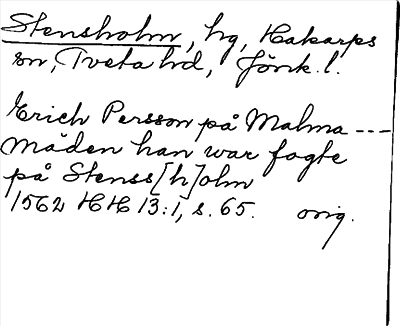 Stensholm, hg, Hakarps
sn, Tveta hd, Jönk. l.
Erich Persson på Malma ---
måden han war fogte
på Stenss[h]olm
1562 HH 13:1, s. 65. orig.